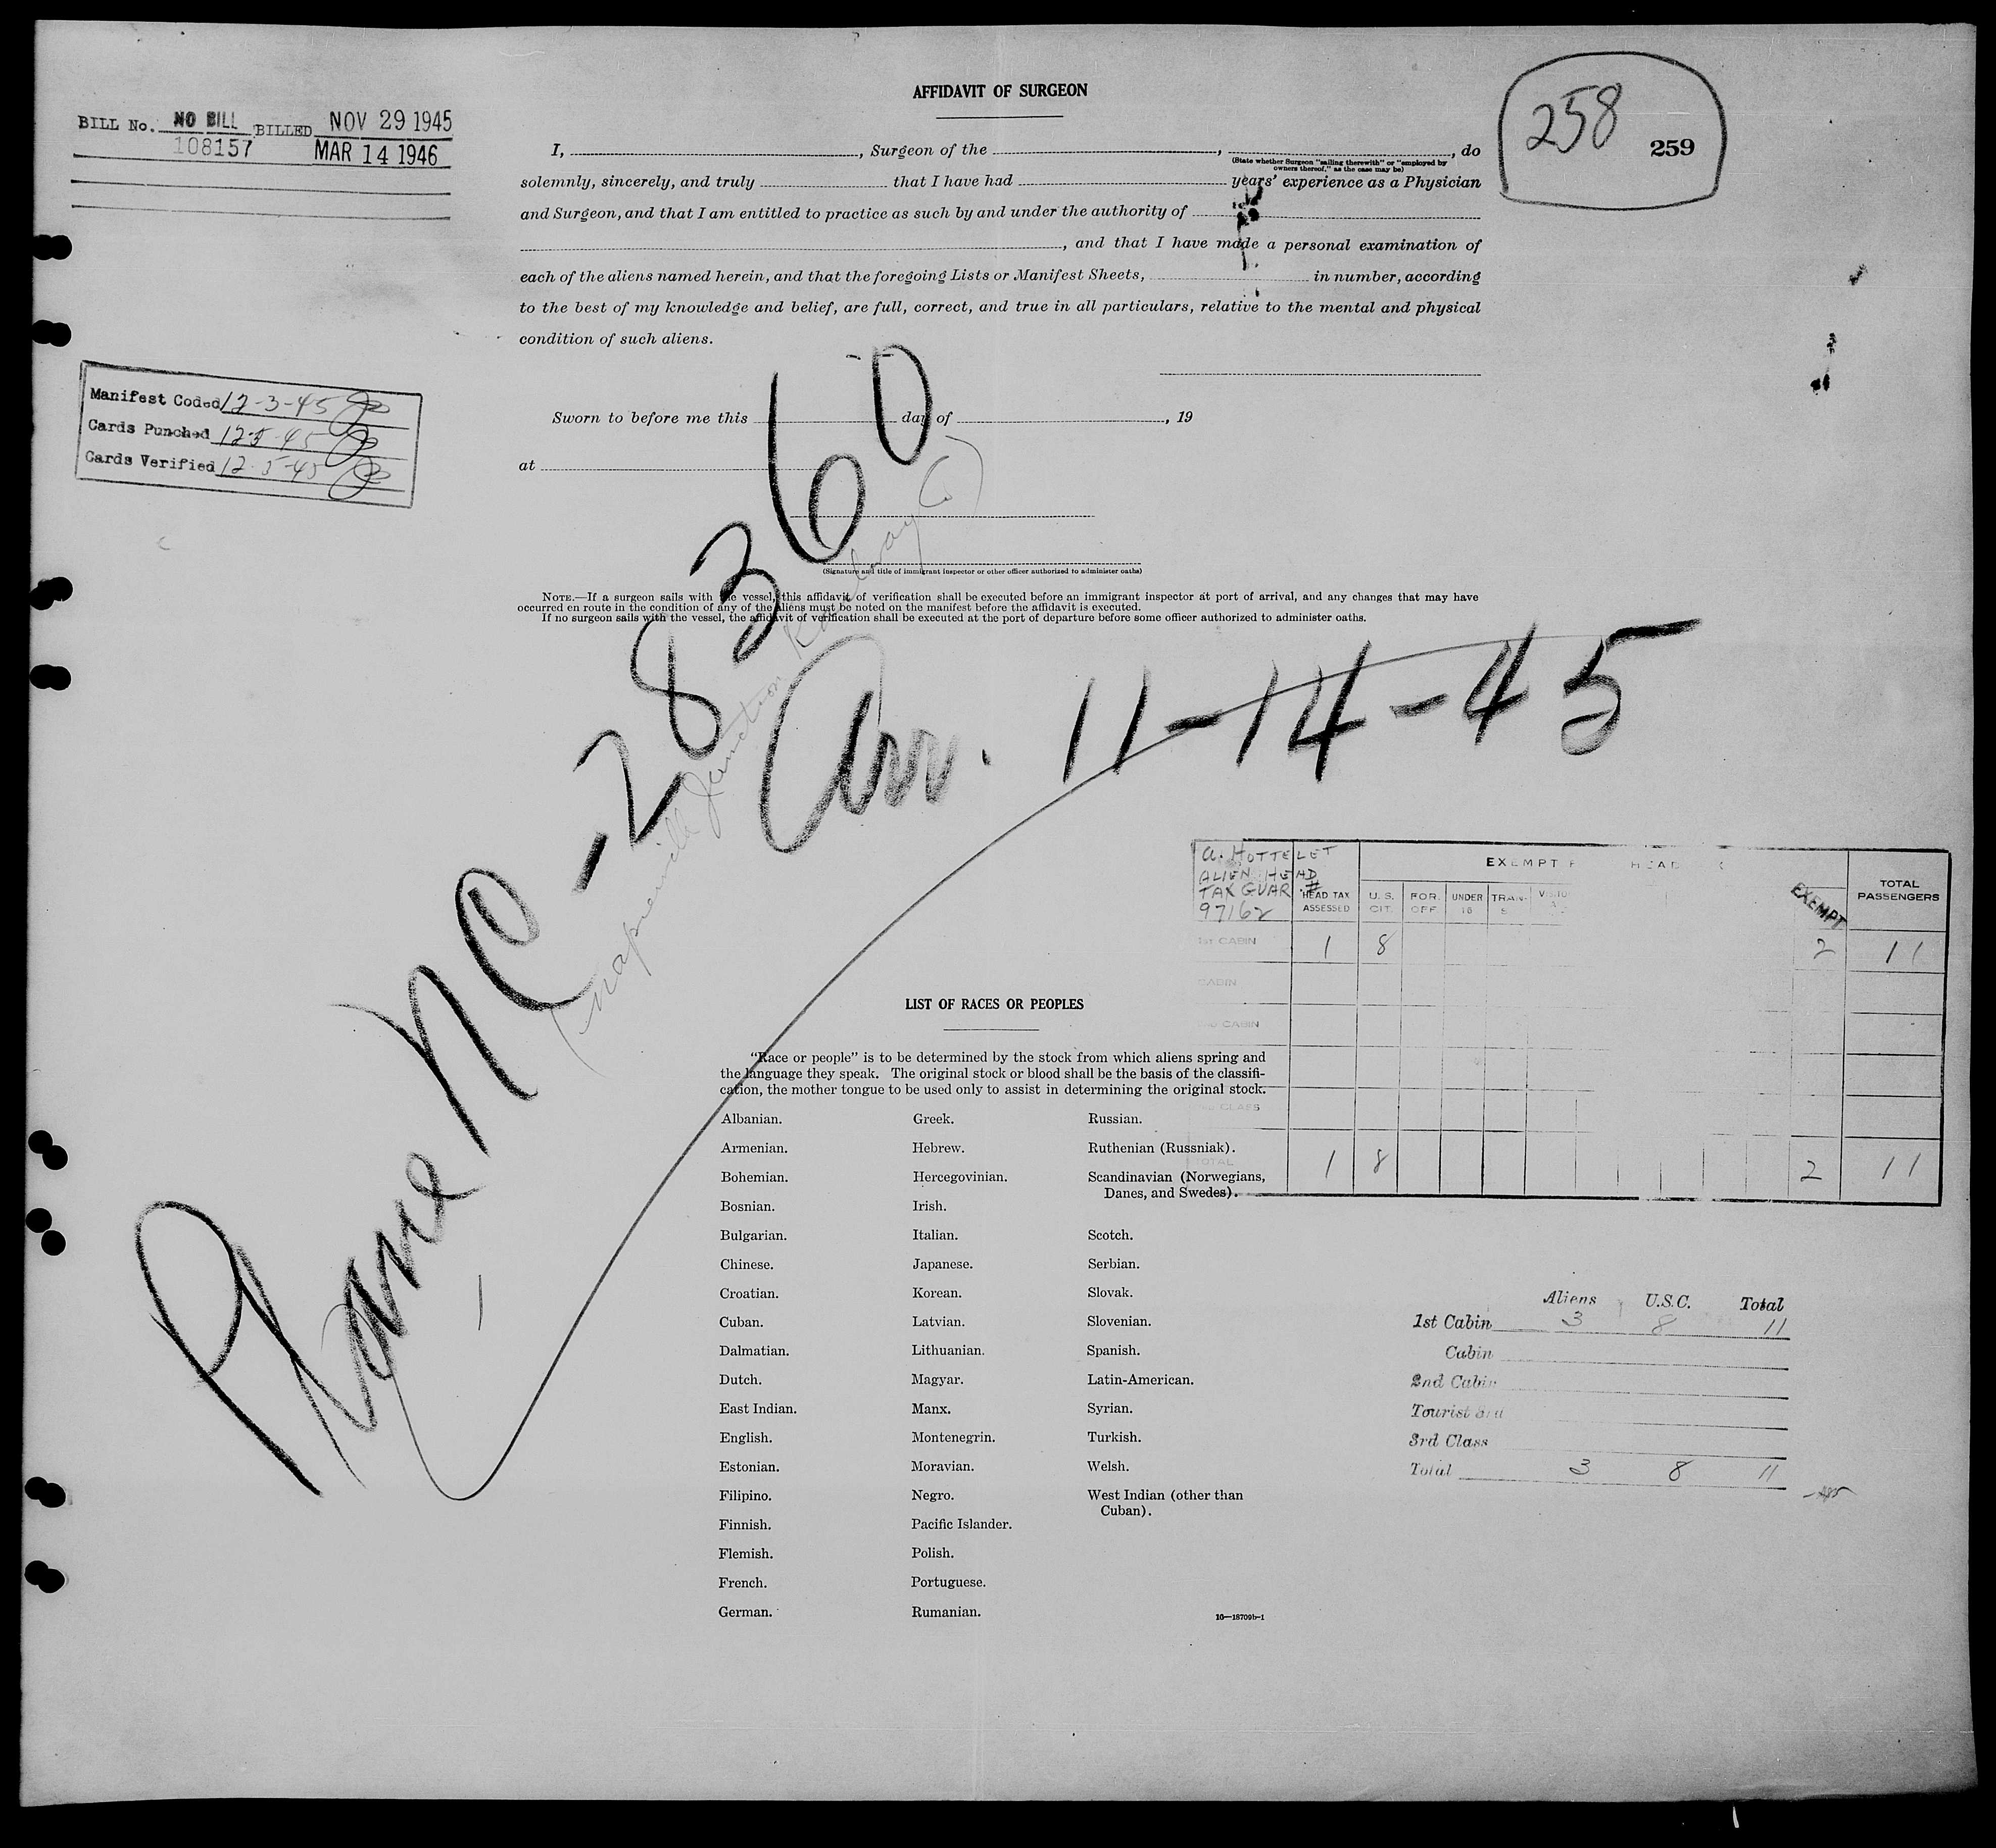 AFFIDAVIT OF SURGEON
BILL No. NO BILL BILLED NOV 29 1945
108157 MAR 14 1946
258 259
I, , Surgeon of the , , do
(State whether Surgeon "sailing therewith" or "employed by
owners thereof," as the case may be)
solemnly, sincerely, and truly that I have had years' experience as a Physician
and Surgeon, and that I am entitled to practice as such by and under the authority of
, and that I have made a personal examination of
each of the aliens named herein, and that the foregoing Lists or Manifest Sheets, in number, according
to the best of my knowledge and belief, are full, correct, and true in all particulars, relative to the mental and physical
condition of such aliens.
Manifest Coded 12-3-45
Cards Punched 12-5-45
Cards Verified 12-5-45
Sworn to before me this day of , 19
at
(Signature and title of immigrant inspector or other officer authorized to administer oaths)
NOTE.—If a surgeon sails with the vessel, this affidavit of verification shall be executed before an immigrant inspector at port of arrival, and any changes that may have
occurred en route in the condition of any of the aliens must be noted on the manifest before the affidavit is executed.
If no surgeon sails with the vessel, the affidavit of verification shall be executed at the port of departure before some officer authorized to administer oaths.
Plane NC-28360
(Napierville Junction Railway Co)
Arr. 11-14-45
A. HOTTELET
ALIEN HEAD
TAX GUAR #
97162
EXEMPT HEAD
HEAD TAX ASSESSED U.S. CIT. FOR. OFF. UNDER 16 TRAN- EXEMPT TOTAL PASSENGERS
1st CABIN 1 8 2 11
CABIN
CABIN
CLASS
TOTAL 1 8 2 11
LIST OF RACES OR PEOPLES
"Race or people" is to be determined by the stock from which aliens spring and
the language they speak. The original stock or blood shall be the basis of the classifi-
cation, the mother tongue to be used only to assist in determining the original stock.
Albanian. Greek. Russian.
Armenian. Hebrew. Ruthenian (Russniak).
Bohemian. Hercegovinian. Scandinavian (Norwegians,
Danes, and Swedes).
Bosnian. Irish.
Bulgarian. Italian. Scotch.
Chinese. Japanese. Serbian.
Croatian. Korean. Slovak.
Cuban. Latvian. Slovenian.
Dalmatian. Lithuanian. Spanish.
Dutch. Magyar. Latin-American.
East Indian. Manx. Syrian.
English. Montenegrin. Turkish.
Estonian. Moravian. Welsh.
Filipino. Negro. West Indian (other than
Cuban).
Finnish. Pacific Islander.
Flemish. Polish.
French. Portuguese.
German. Rumanian.
16—18709b-1
Aliens U.S.C. Total
1st Cabin 3 8 11
Cabin
2nd Cabin
Tourist 3rd
3rd Class
Total 3 8 11